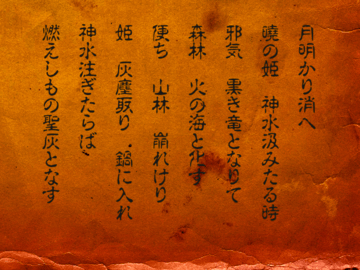 月明かり消へ
暁の姫　神水汲みたる時
邪気　黒き竜となりて
森林　火の海と化す
便ち　山林　崩れけり
姫　灰塵取り　鍋に入れ
神水注ぎたらば、
燃えしもの聖灰となす